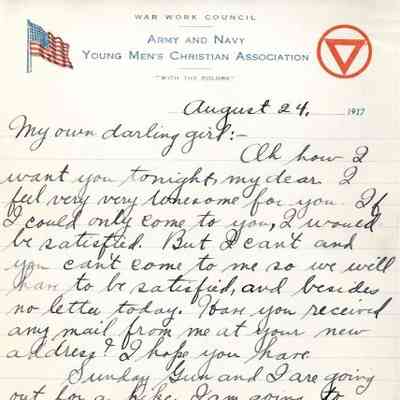 WAR WORK COUNCIL
ARMY AND NAVY
YOUNG MEN'S CHRISTIAN ASSOCIATION
"WITH THE COLORS"
August 24, 1917
My own darling girl:-
Oh how I
want you tonight, my dear. I
feel very very lonesome for you. If
I could only come to you, I would
be satisfied. But I can't and
you can't come to me so we will
have to be satisfied, and besides
no letter today. Have you received
any mail from me at your new
address? I hope you have
Sunday Gun and I are going
out for a hike. I am going to